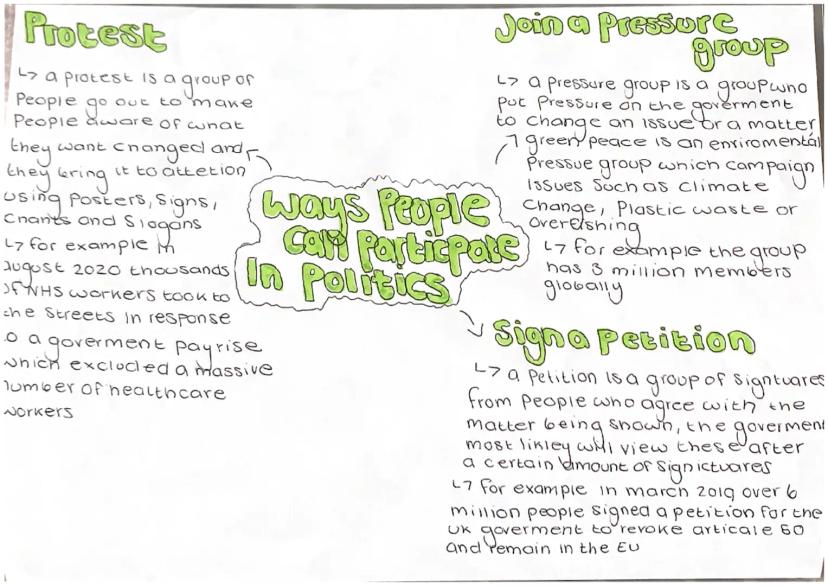 Protest
↳ a protest is a group of
People go out to make
People aware of what
they want changed and
they bring it to attetion
using Posters, Signs,
Chants and Slogans
↳ for example in
august 2020 thousands
of NHS workers took to
the streets in response
to a goverment payrise
which excluded a massive
number of healthcare
workers
Ways People
Can Particpate
In Politics
Join a Pressure
group
↳ a Pressure group is a group who
put Pressure on the goverment
to change an issue or a matter
green peace is an enviromental
Pressue group which campaign
Issues Such as Climate
Change, Plastic waste or
Overfishing
↳ for example the group
has 3 million members
globally
Sign a Petition
↳ a Petition is a group of signtuares
from People who agree with the
matter being shown, the goverment
most likley will view these after
a certain amount of signictuares
↳ for example in march 2019 over 6
million people signed a petition for the
UK goverment to revoke articale 50
and remain in the EU